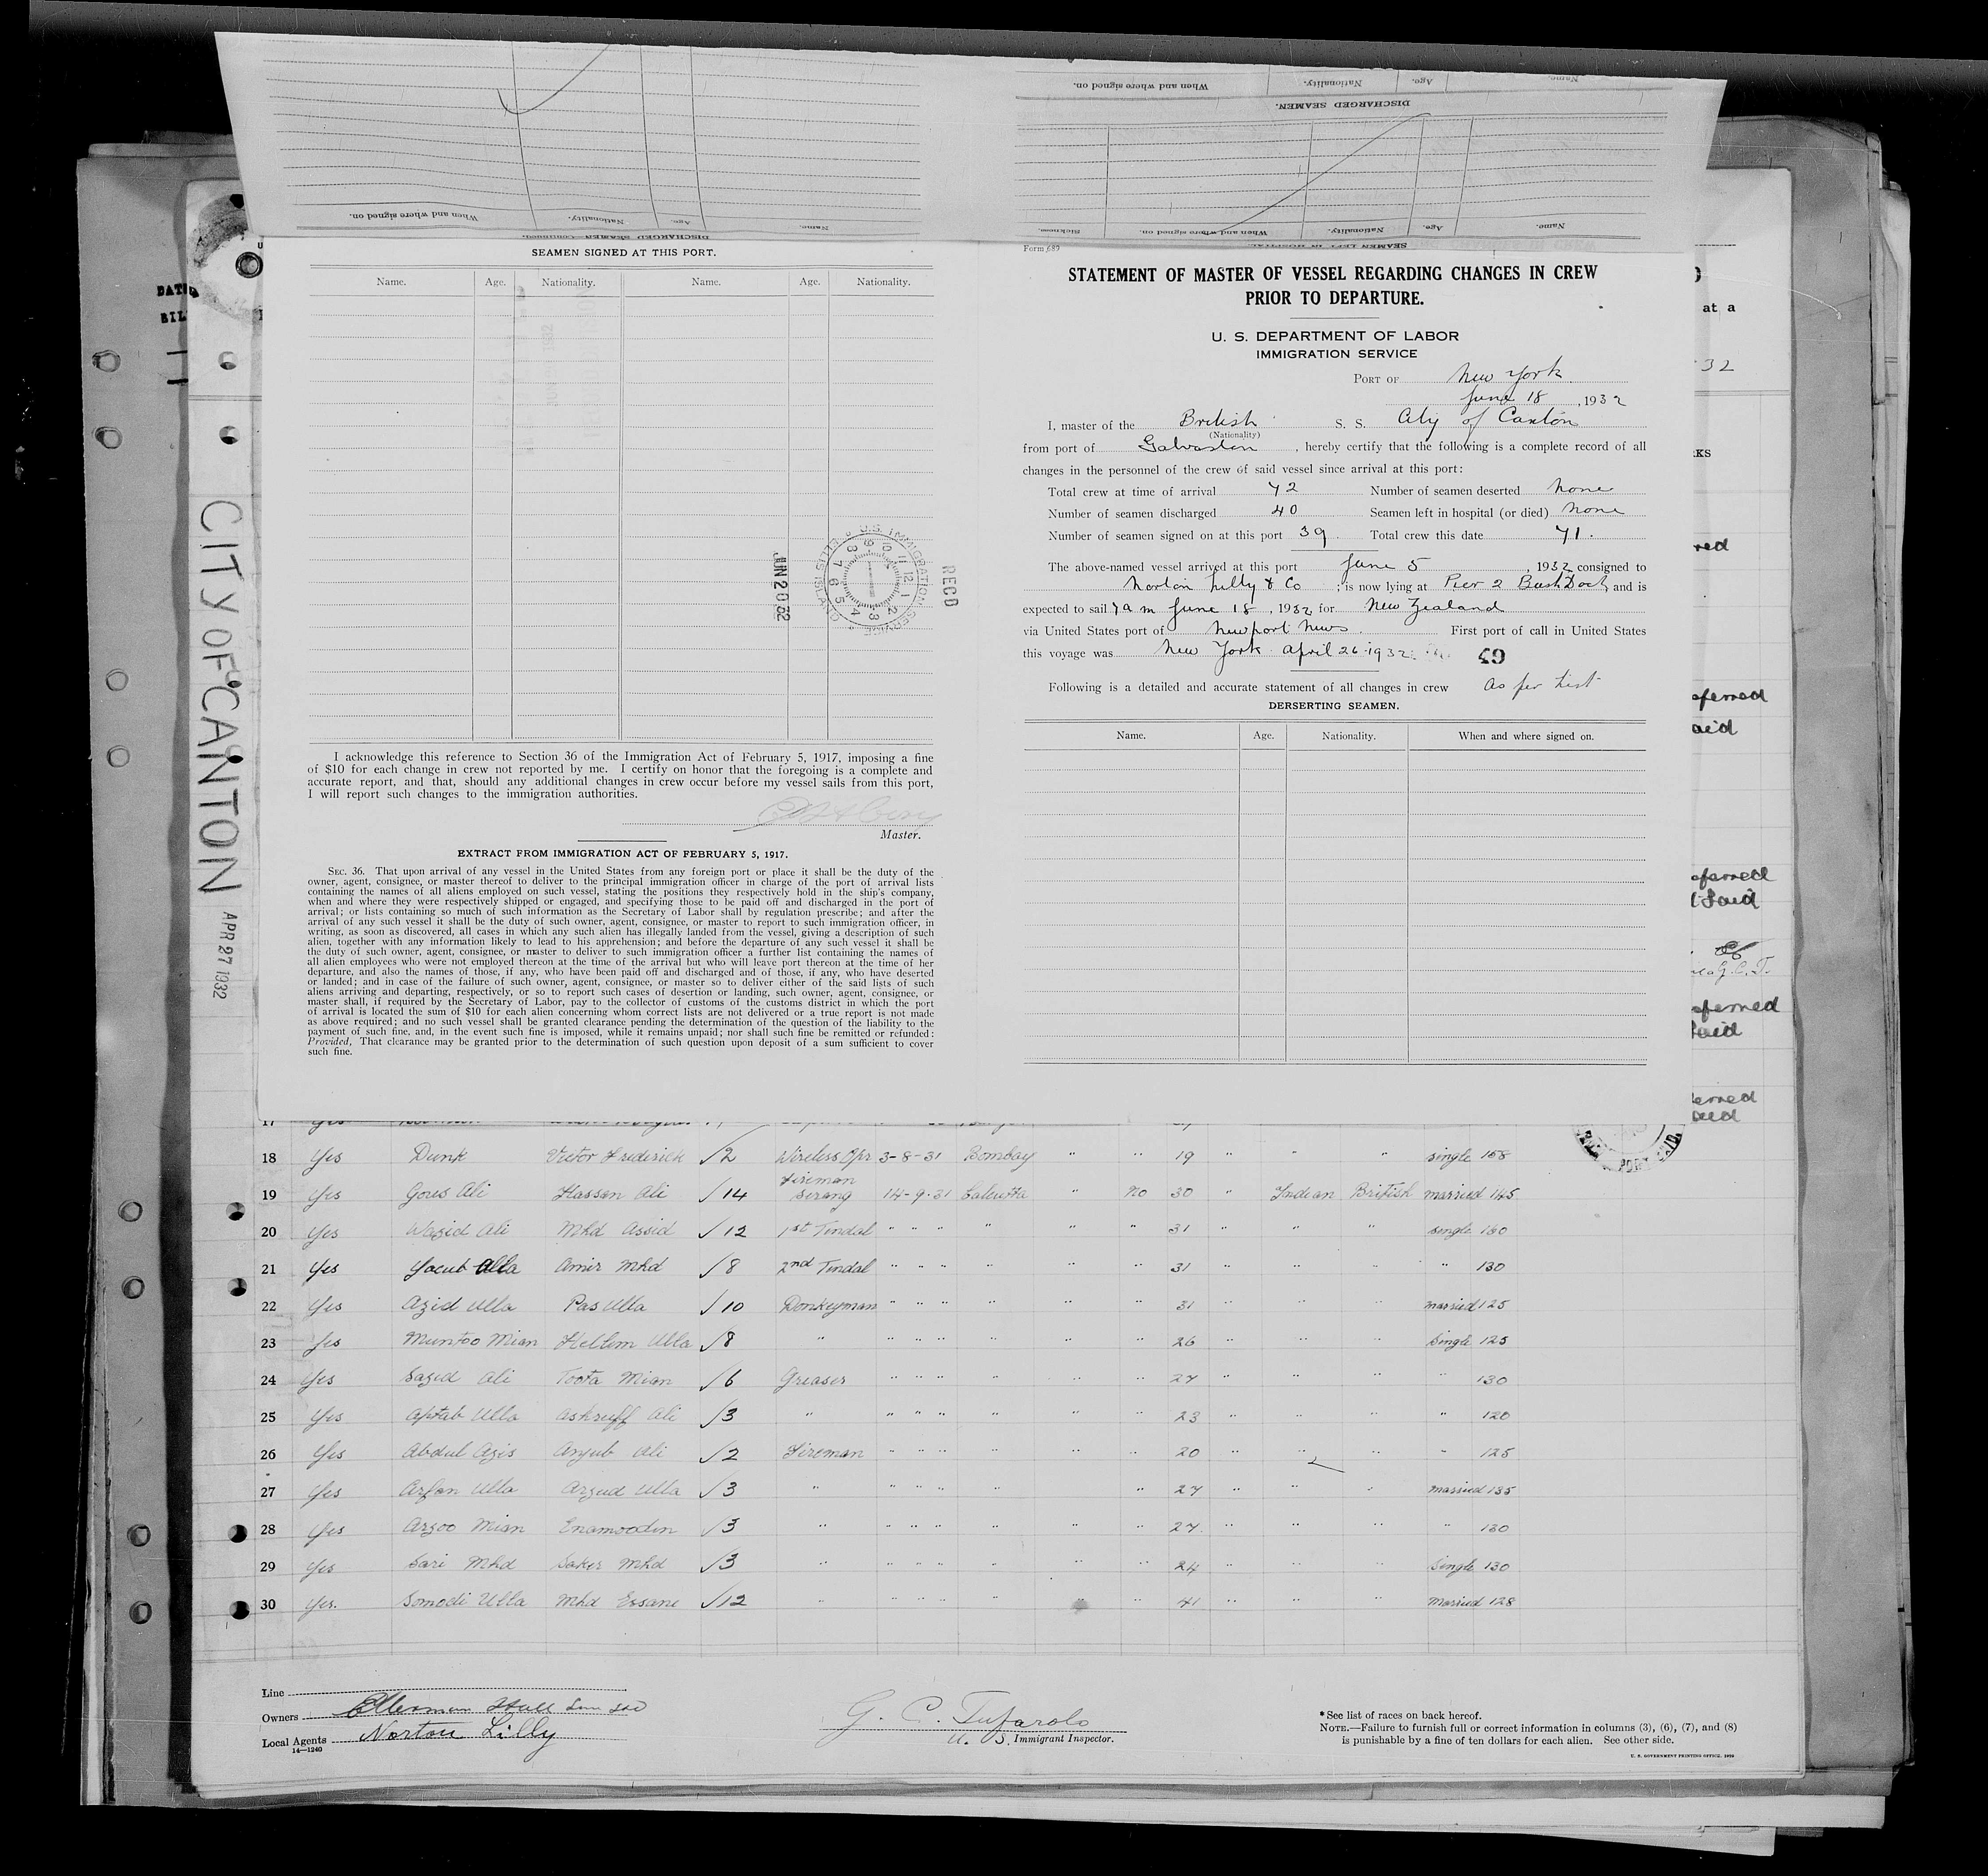 SEAMEN SIGNED AT THIS PORT.
Name. Age. Nationality. Name. Age. Nationality.
U.S. IMMIGRATION SERVICE
ELLIS ISLAND
JUN 20 32
RECD
I acknowledge this reference to Section 36 of the Immigration Act of February 5, 1917, imposing a fine
of $10 for each change in crew not reported by me. I certify on honor that the foregoing is a complete and
accurate report, and that, should any additional changes in crew occur before my vessel sails from this port,
I will report such changes to the immigration authorities.
Master.
EXTRACT FROM IMMIGRATION ACT OF FEBRUARY 5, 1917.
SEC. 36. That upon arrival of any vessel in the United States from any foreign port or place it shall be the duty of the
owner, agent, consignee, or master thereof to deliver to the principal immigration officer in charge of the port of arrival lists
containing the names of all aliens employed on such vessel, stating the positions they respectively hold in the ship's company,
when and where they were respectively shipped or engaged, and specifying those to be paid off and discharged in the port of
arrival; or lists containing so much of such information as the Secretary of Labor shall by regulation prescribe; and after the
arrival of any such vessel it shall be the duty of such owner, agent, consignee, or master to report to such immigration officer, in
writing, as soon as discovered, all cases in which any such alien has illegally landed from the vessel, giving a description of such
alien, together with any information likely to lead to his apprehension; and before the departure of any such vessel it shall be
the duty of such owner, agent, consignee, or master to deliver to such immigration officer a further list containing the names of
all alien employees who were not employed thereon at the time of the arrival but who will leave port thereon at the time of her
departure, and also the names of those, if any, who have been paid off and discharged and of those, if any, who have deserted
or landed; and in case of the failure of such owner, agent, consignee, or master so to deliver either of the said lists of such
aliens arriving and departing, respectively, or so to report such cases of desertion or landing, such owner, agent, consignee, or
master shall, if required by the Secretary of Labor, pay to the collector of customs of the customs district in which the port
of arrival is located the sum of $10 for each alien concerning whom correct lists are not delivered or a true report is not made
as above required; and no such vessel shall be granted clearance pending the determination of the question of the liability to the
payment of such fine, and, in the event such fine is imposed, while it remains unpaid; nor shall such fine be remitted or refunded:
Provided, That clearance may be granted prior to the determination of such question upon deposit of a sum sufficient to cover
such fine.
When and where signed on. Nationality. Age. Name.
DISCHARGED SEAMEN.
When and where signed on. Nationality. Age. Name.
DISCHARGED SEAMEN—Continued.
Sickness. When and where signed on. Nationality. Age. Name.
SEAMEN LEFT IN HOSPITAL.
Form 689
STATEMENT OF MASTER OF VESSEL REGARDING CHANGES IN CREW
PRIOR TO DEPARTURE.
U. S. DEPARTMENT OF LABOR
IMMIGRATION SERVICE
PORT OF New York
June 18, 1932
I, master of the British S. S. City of Canton
(Nationality)
from port of Galveston, hereby certify that the following is a complete record of all
changes in the personnel of the crew of said vessel since arrival at this port:
Total crew at time of arrival 72 Number of seamen deserted None
Number of seamen discharged 40 Seamen left in hospital (or died) None
Number of seamen signed on at this port 39 Total crew this date 71.
The above-named vessel arrived at this port June 5, 1932 consigned to
Norton Lilly & Co; is now lying at Pier 2 Bush Dock, and is
expected to sail 7 am June 18, 1932 for New Zealand
via United States port of Newport News. First port of call in United States
this voyage was New York April 26·1932
49
Following is a detailed and accurate statement of all changes in crew As per List
DERSERTING SEAMEN.
Name. Age. Nationality. When and where signed on.
CITY OF CANTON
APR 27 1932
17 Yes
18 Yes Dunk Victor Frederick √2 Wireless Opr 3-8-31 Bombay " " 19 " " " single 158
19 Yes Gous Ali Hassan Ali √14 Fireman Serang 14-9-31 Calcutta " no 30 " Indian British married 145
20 Yes Wazid Ali Mhd Assid √12 1st Tindal " " " " " " 31 " " single 130
21 Yes Yacub Ulla Amir Mhd √8 2nd Tindal " " " " " " 31 " " " 130
22 Yes Azid Ulla Pas Ulla √10 Donkeyman " " " " " " 31 " " " married 125
23 Yes Muntoo Mian Hellim Ulla √8 " " " " " " " 26 " " " single 125
24 Yes Sazid Ali Toota Mian √6 Greaser " " " " " " 27 " " " " 130
25 Yes Aftab Ulla Ashruff Ali √3 " " " " " " " 23 " " " " 120
26 Yes Abdul Azis Anjub Ali √2 Fireman " " " " " " 20 " " " " 125
27 Yes Arfan Ulla Arzud Ulla √3 " " " " " " 27 " " " married 135
28 Yes Arzoo Mian Enamoodin √3 " " " " " " " 27 " " " " 130
29 Yes Sari Mhd Saker Mhd √3 " " " " " " " 24 " " " single 130
30 Yes. Somodi Ulla Mhd Essane √12 " " " " " " " 41 " " " married 128
Line
Owners Ellerman Hall Line Ltd
Local Agents Norton Lilly
14—1240
G. C. Tufarolo
U. S. Immigrant Inspector.
*See list of races on back hereof.
NOTE.—Failure to furnish full or correct information in columns (3), (6), (7), and (8)
is punishable by a fine of ten dollars for each alien. See other side.
U. S. GOVERNMENT PRINTING OFFICE